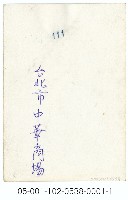 111
台北市中華商場
05-00 -102-0538-0001-1